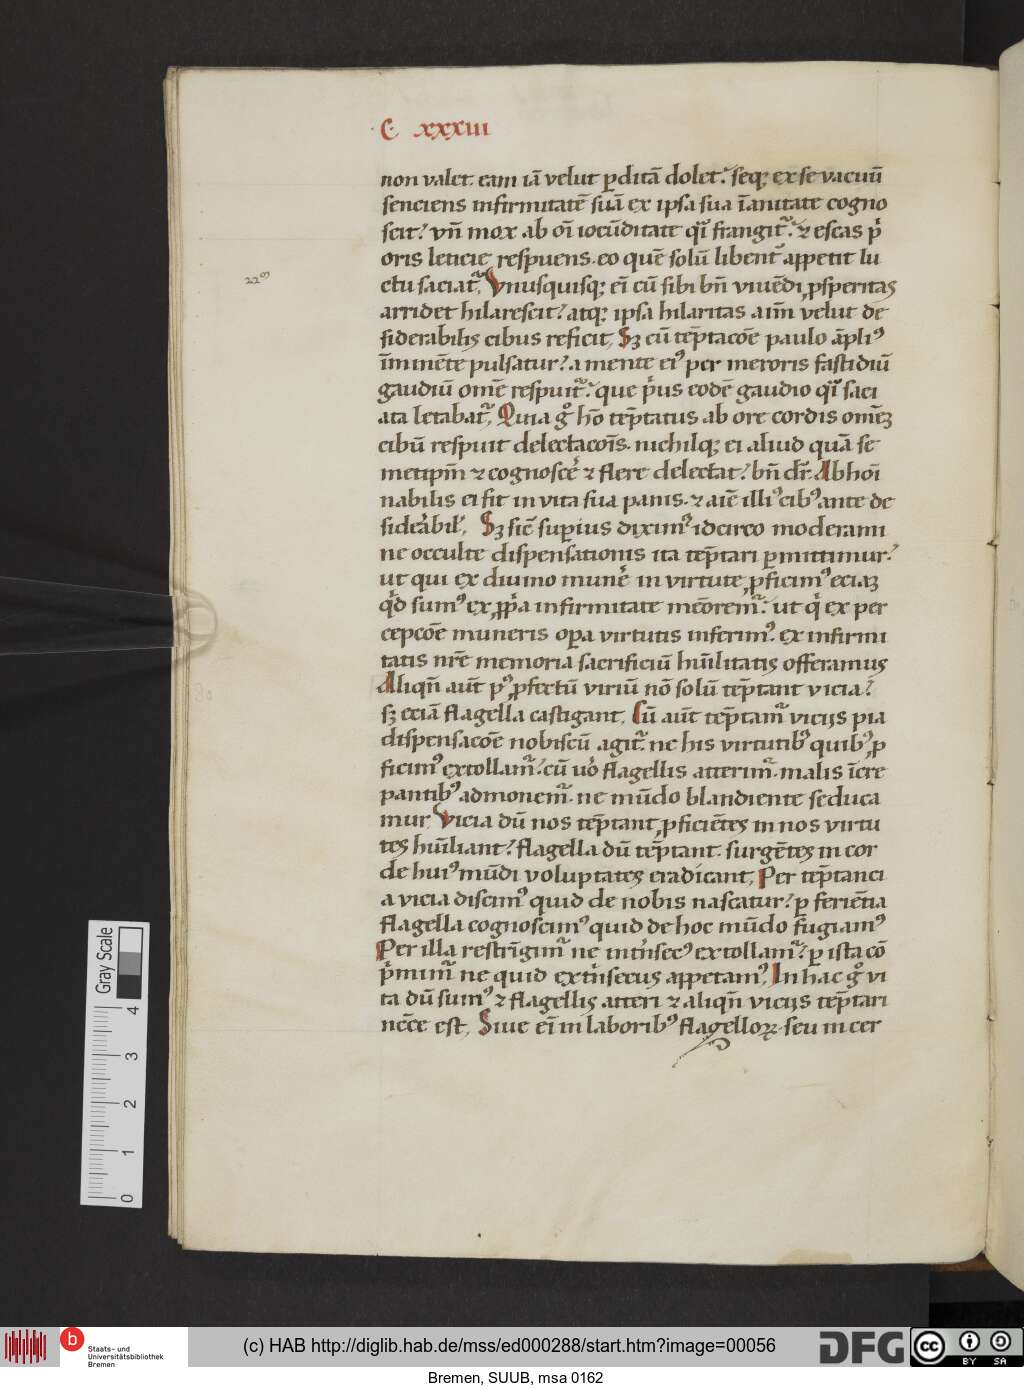 C xxxiii
non valet. eam iā velut ꝑditā dolet. seqꝫ ex se vacuū
senciens infirmitatē suā ex ipsa sua īanitate cogno
scit? vn̄ mox ab oī iocūditate qͣi frangit᷑. ⁊ escas pͥ
oris leticie respuens. eo quē solū libent᷑ appetit lu
22ꝰ
ctu saciat᷑. Vnusquisqꝫ eī cū sibi bn̄ viuēdi ꝓsperitas
arridet hilarescit? atqꝫ ipsa hilaritas aīm velut de
siderabilis cibus reficit. Sꝫ cū tēptacōe paulo āpliꝰ
īminēte pulsatur? a mente eiꝰ per meroris fastidiū
gaudiū omē respuit᷑. que pͥus eodē gaudio qͣi saci
ata letabat᷑. Quia gͦ hō tēptatus ab ore cordis omēꝫ
cibū respuit delectacōis. nichilqꝫ ei aliud quā se
metip̄m ⁊ cognoscē ⁊ flere delectat? bn̄ dr̄. Abhoī
nabilis ei fit in vita sua panis. ⁊ aīe illiꝰ cibꝰ ante de
siderabil̓. Sꝫ sic̄ suꝑius diximꝰ idcirco moderami
ne occulte dispensationis ita tēptari ꝑmittimur?
ut qui ex diuino munē in virtute ꝓficimꝰ eciaꝫ
qͥd sumꝰ ex ꝓpͥa infirmitate mēorem᷑. ut qͥ ex per
cepcōe muneris oꝑa virtutis inferimꝰ. ex infirmi
tatis nr̄e memoria sacrificiū hūilitatis offeramus
Aliqn̄ aūt pꝰ ꝓfectū viriū nō solū tēptant vicia?
sꝫ eciā flagella castigant. Cū aūt tēptam᷑ vicijs pia
dispensacōe nobiscū agit᷑. ne his virtutibꝰ quibꝰ ꝓ
ficimꝰ extollam᷑? cū uͦo flagellis atterim᷑. malis īcre
pantibꝰ admonem᷑. ne mūdo blandiente seduca
mur. Vicia dū nos tēptant ꝓficiētes in nos virtu
tes hūiliant? flagella dū tēptant. surgētes in cor
de huiꝰ mūdi voluptates eradicant. Per tēptanci
a vicia discimꝰ quid de nobis nascatur? ꝑ feriētia
flagella cognoscimꝰ quid de hoc mūdo fugiamꝰ
Per illa restrīgim᷑ ne int̄nsecꝰ extollam᷑? ꝑ ista cō
pͥmim᷑ ne quid ext̄nsecus appetamꝰ. In hac gͦ vi
ta dū sumꝰ ⁊ flagellis atteri ⁊ aliqn̄ vicijs tēptari
nēce est. Siue eī in laboribꝰ flagelloꝝ. seu in cer
Gray Scale
0 1 2 3 4
b Staats- und
Universitätsbibliothek
Bremen
(c) HAB http://diglib.hab.de/mss/ed000288/start.htm?image=00056
DFG
cc BY SA
Bremen, SUUB, msa 0162